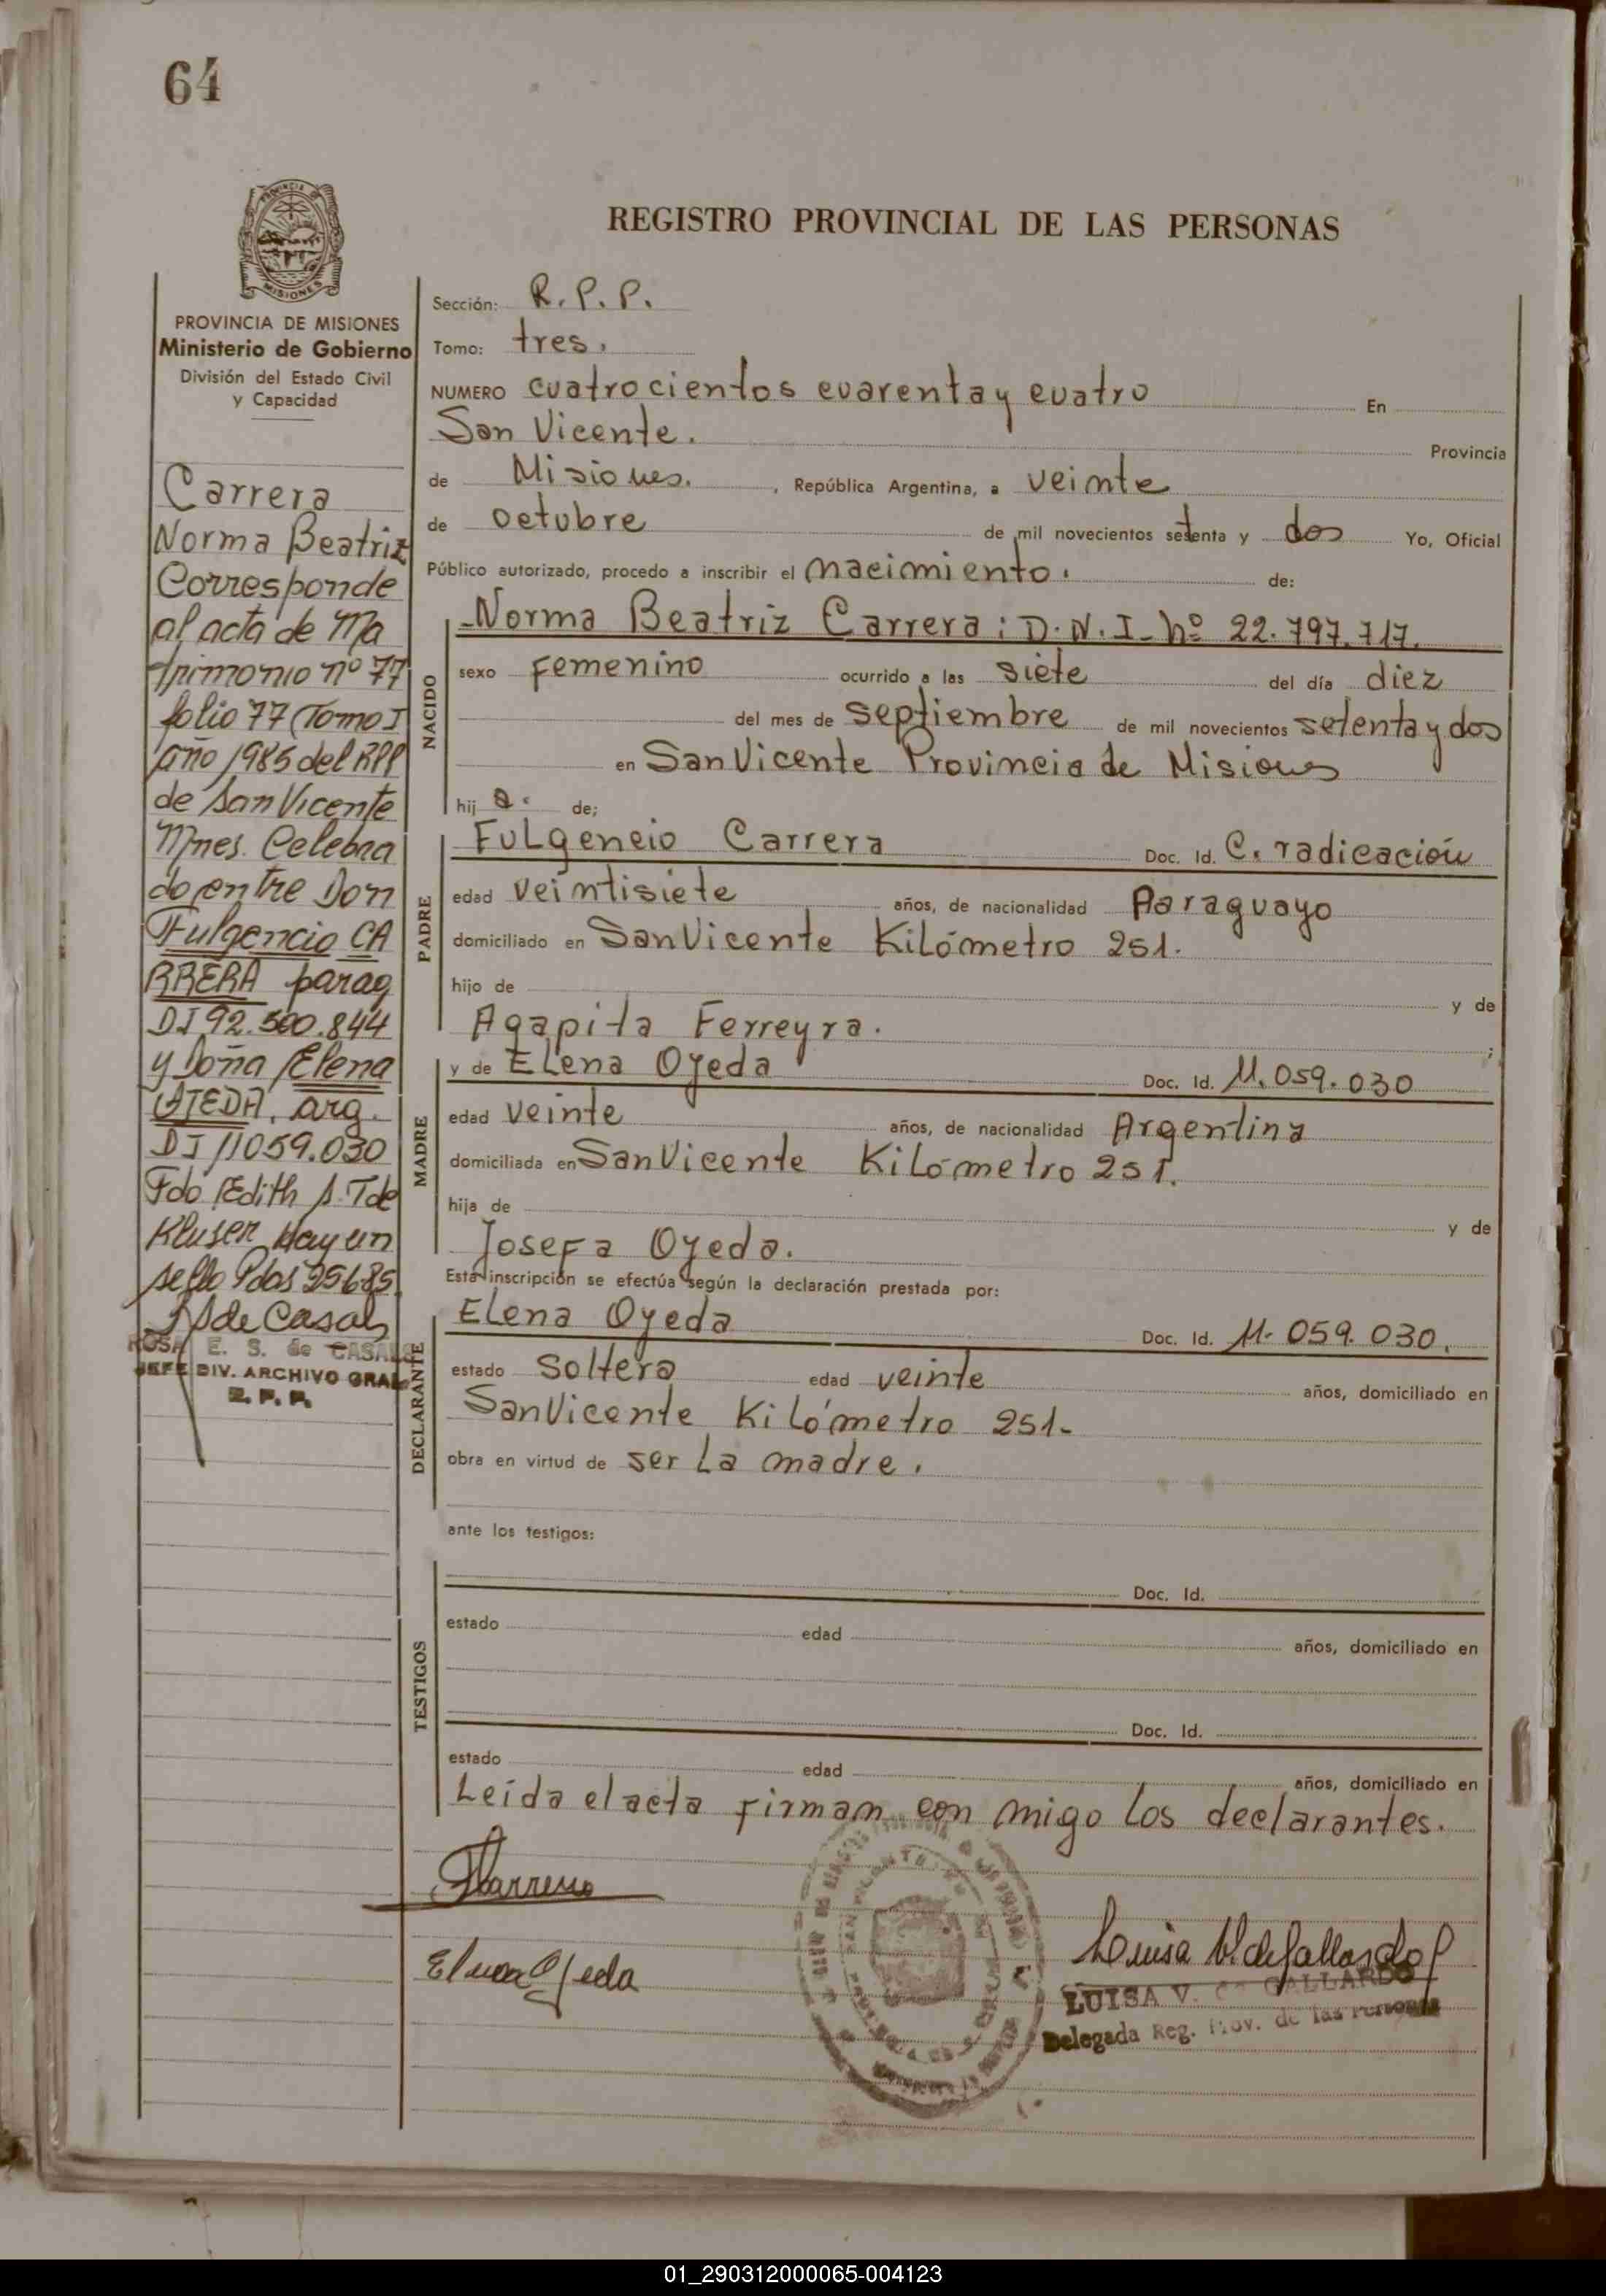 64
PROVINCIA DE MISIONES
Ministerio de Gobierno
División del Estado Civil
y Capacidad
Carrera
Norma Beatriz
Corresponde
al acta de Ma
trimonio nº 77
folio 77 Tomo I
año 1985 del RPP
de San Vicente
Mnes. Celebra
do entre Don
Fulgencio CA
RRERA parag
DI 92.500.844
y Doña Elena
OJEDA, arg.
DI 11059.030
Fdo Edith A. T de
Kluser Hay un
sello Pdas 25685
ROSA E. S. de CASALS
JEFE DIV. ARCHIVO GRAL
R. P. P.
REGISTRO PROVINCIAL DE LAS PERSONAS
Sección: R. P. P.
Tomo: tres.
NUMERO cuatrocientos cuarenta y cuatro En
San Vicente. Provincia
de Misiones. , República Argentina, a veinte
de octubre de mil novecientos setenta y dos Yo, Oficial
Público autorizado, procedo a inscribir el nacimiento. de:
NACIDO
Norma Beatriz Carrera: D.N.I- nº 22.797.717.
sexo Femenino ocurrido a las siete del día diez
del mes de septiembre de mil novecientos setenta y dos
en San Vicente Provincia de Misiones
hij a. de;
PADRE
Fulgencio Carrera Doc. Id. C. radicación
edad veintisiete años, de nacionalidad Paraguayo
domiciliado en San Vicente Kilómetro 251.
hijo de y de
Agapita Ferreyra. ;
MADRE
y de Elena Ojeda Doc. Id. 11.059.030
edad veinte años, de nacionalidad Argentina
domiciliada en San Vicente Kilómetro 251.
hija de y de
Josefa Ojeda.
Esta inscripción se efectúa según la declaración prestada por:
DECLARANTE
Elena Ojeda Doc. Id. 11-059.030.
estado soltera edad veinte años, domiciliado en
San Vicente Kilómetro 251-
obra en virtud de ser la madre.
ante los testigos:
TESTIGOS
Doc. Id.
estado edad años, domiciliado en
Doc. Id.
estado edad años, domiciliado en
Leída el acta firman con migo los declarantes.
Elena Ojeda
Luisa V. de Gallardo
LUISA V. de GALLARDO
Delegada Reg. Prov. de las Personas
01_290312000065-004123